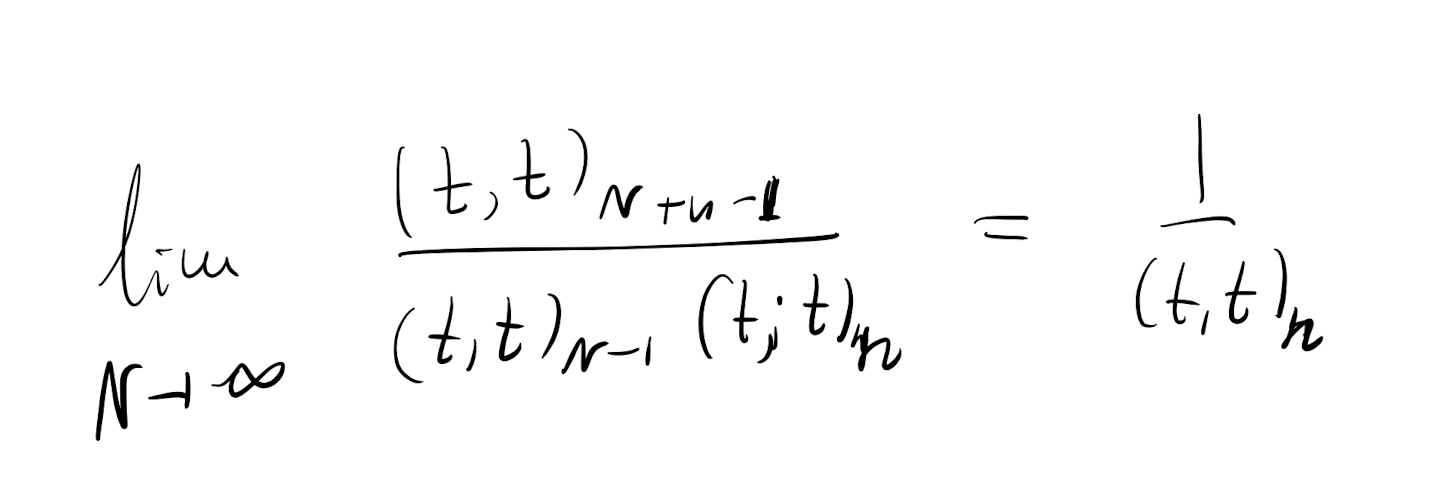 \lim_{N \to \infty} \frac{(t,t)_{N+n-1}}{(t,t)_{N-1} (t;t)_n} = \frac{1}{(t,t)_n}